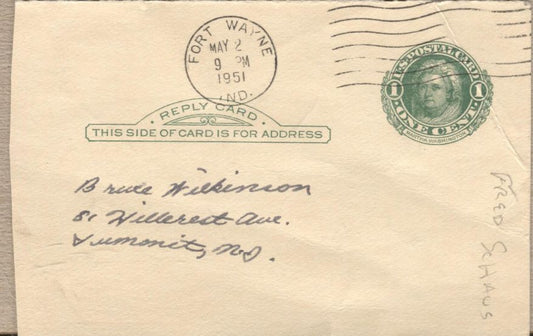 FORT WAYNE
MAY 2
9 PM
1951
IND.
U.S. POSTAL CARD
1 1
ONE CENT
MARTHA WASHINGTON
REPLY CARD
THIS SIDE OF CARD IS FOR ADDRESS
Bruce Wilkinson
81 Hillcrest Ave.
Summit, NJ.
FRED SCHAUS